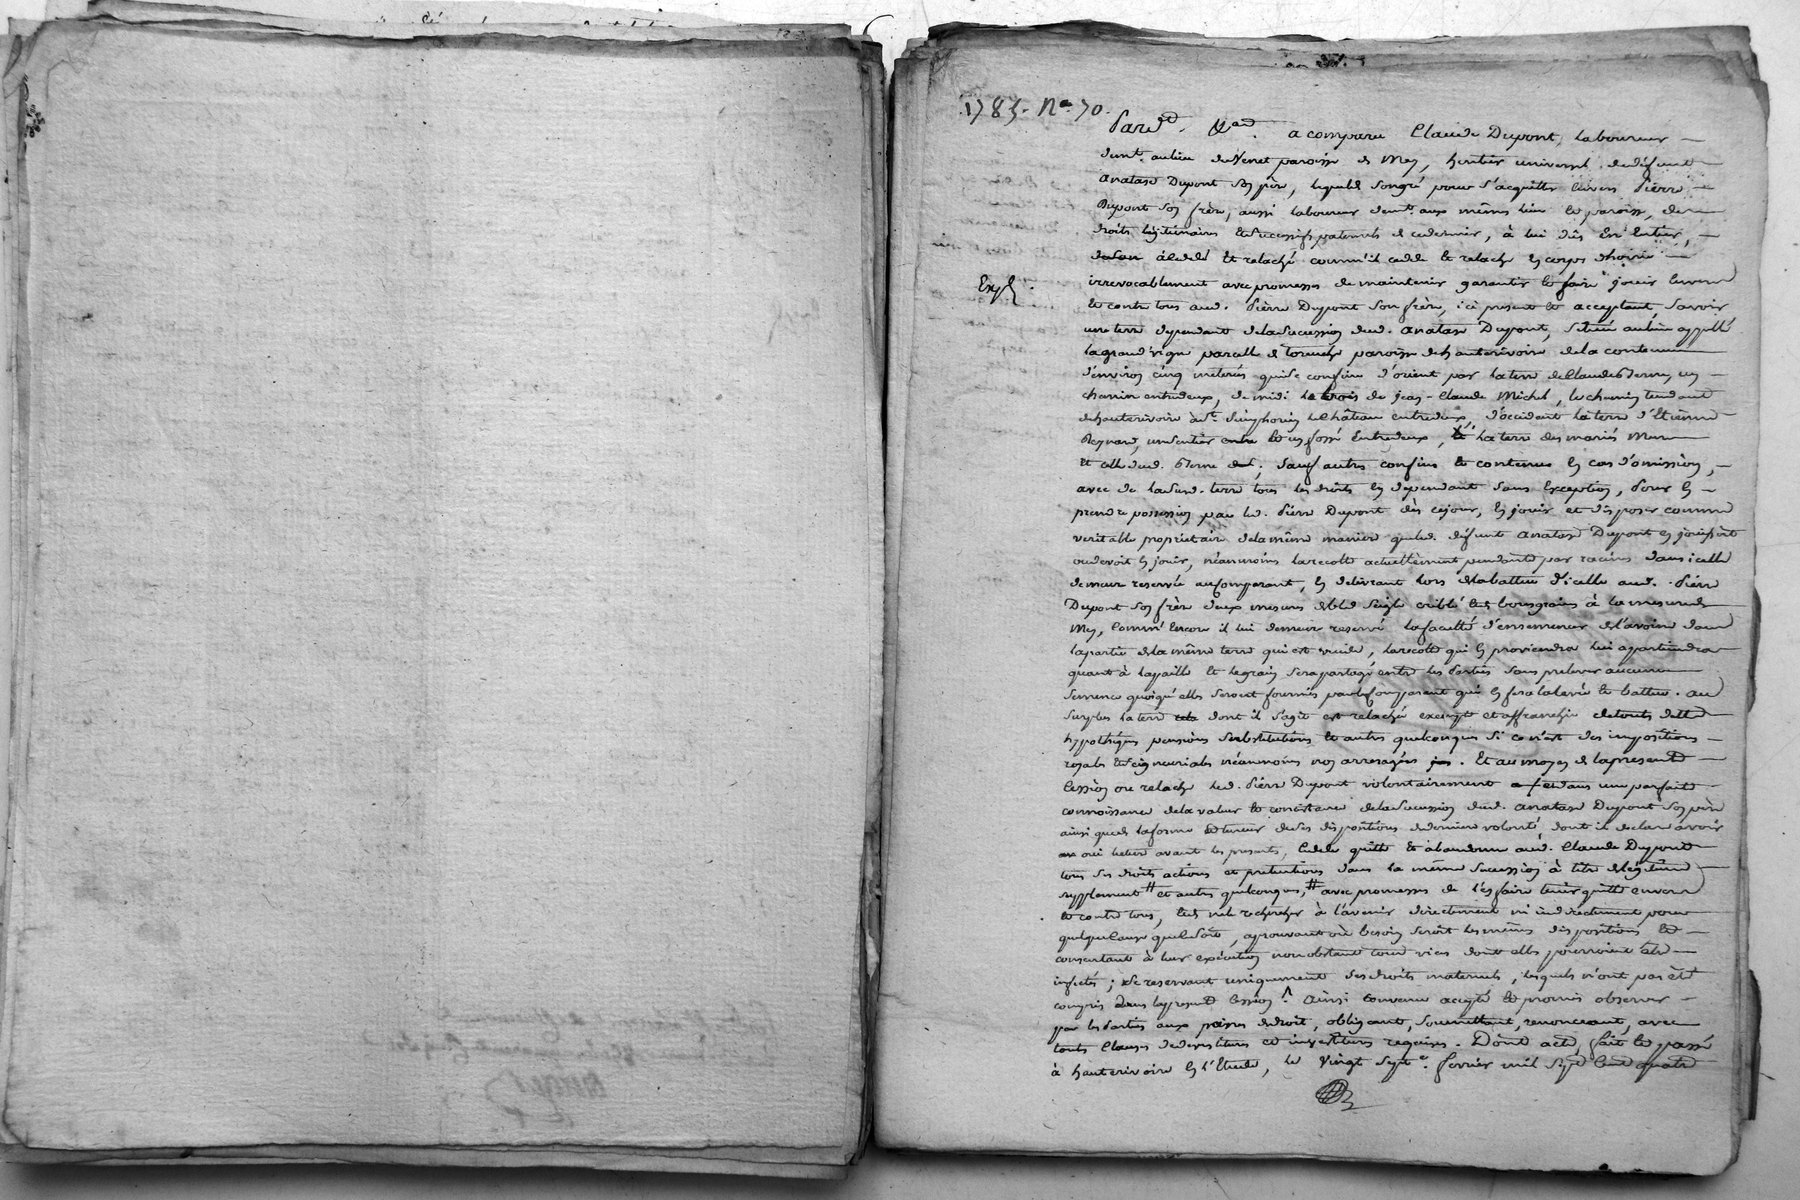 1785. N° 70.
Pard. a comparu Claude Dupont, laboureur
demt. au lieu de Venet paroisse de Mey, heritier universel de défunt
anatase Dupont son père, lequel de son gré pour s'acquitter envers Pierre
Dupont son frère, aussi laboureur demt. aux mêmes lieu et paroisse, des
droits légitimaires et successifs paternels de ce dernier, à lui dûs en entier,
a cédé et relaché comm'il cedde et relache en corps d'hoirie
Expé.
irrevocablement avec promesses de maintenir garantir et faire jouir envers
et contre tous aud. Pierre Dupont son frère, ici présent et acceptant, savoir
une terre dependant de la succession dud. anatase Dupont, située au lieu appellé
la grand'vigne parcelle de paroisse de hauterivoire de la contenue
d'environ cinq meterés qui se confine d'orient par la terre de Claude un
chemin entredeux, de midi le bois de jean-Claude Michel, le chemin tendant
de hauterivoire à St. Simphorien le Château entredeux, d'occident la terre d'Etienne
Reynard, un sentier et un fossé entredeux, la terre des mariés
et celle dud. sauf autres confins et contenue en cas d'omission,
avec de lad. terre tous les droits en dependant sans exception, pour en
prendre possession par led. Pierre Dupont dès ce jour, en jouir et disposer comme
veritable proprietaire de la même maniere que led. défunt anatase Dupont en jouissoit
ou devoit en jouir, néanmoins la recolte actuellement pendante par racines dans icelle
demeure reservée au comparant, en delivrant lors de la battue d'icelle aud. Pierre
Dupont son frère deux mesures de bled seigle criblé et bourgeois à la mesure de
Mey, comm' encore il lui demeure reservé la faculté d'ensemencer de l'avoine dans
la partie de la même terre qui est vuide, la recolte qui en proviendra lui apartiendra
quant à la paille et le grain sera partagé entre les parties sans prelever aucune
semence quoiqu'elle seront fournies par le comparant qui en fera la levée et battue. au
surplus la terre dont il s'agit est relachée exempte et affranchie de toutes dettes
hypothèques pensions substitutions et autres quelconques si ce n'est des impositions
royales et seigneuriales néanmoins non arreragées. Et au moyen de la presente
cession ou relache led. Pierre Dupont volontairement et dans une parfaite
connoissance de la valeur et consistance de la succession dud. anatase Dupont son père
ainsi que de la forme et teneur de ses dispositions de derniere volonté, dont il déclare avoir
oui lecture avant les presentes, cede quitte et abandonne aud. Claude Dupont
tous ses droits actions et pretentions dans la même succession à titre de légitime
supplement # et autres quelconques, # avec promesses de l'en faire tenir quitte envers
et contre tous, et ne le rechercher à l'avenir directement ni indirectement pour
quelque cause que ce soit, aprouvant où besoin seroit les mêmes dispositions et
consentant à leur exécution nonobstant tous vices dont elles pourroient être
infectés ; se reservant uniquement ses droits maternels, lesquels n'ont pas été
compris dans la presente cession. Ainsi convenu accepté et promis observer
par les parties aux peines de droit, obligeant, soumettant, renonceant, avec
toutes clauses de devestitures et investitures requises. Dont acte, fait et passé
à hauterivoire en l'étude, le vingt sept e. fevrier mil sept cent quatre